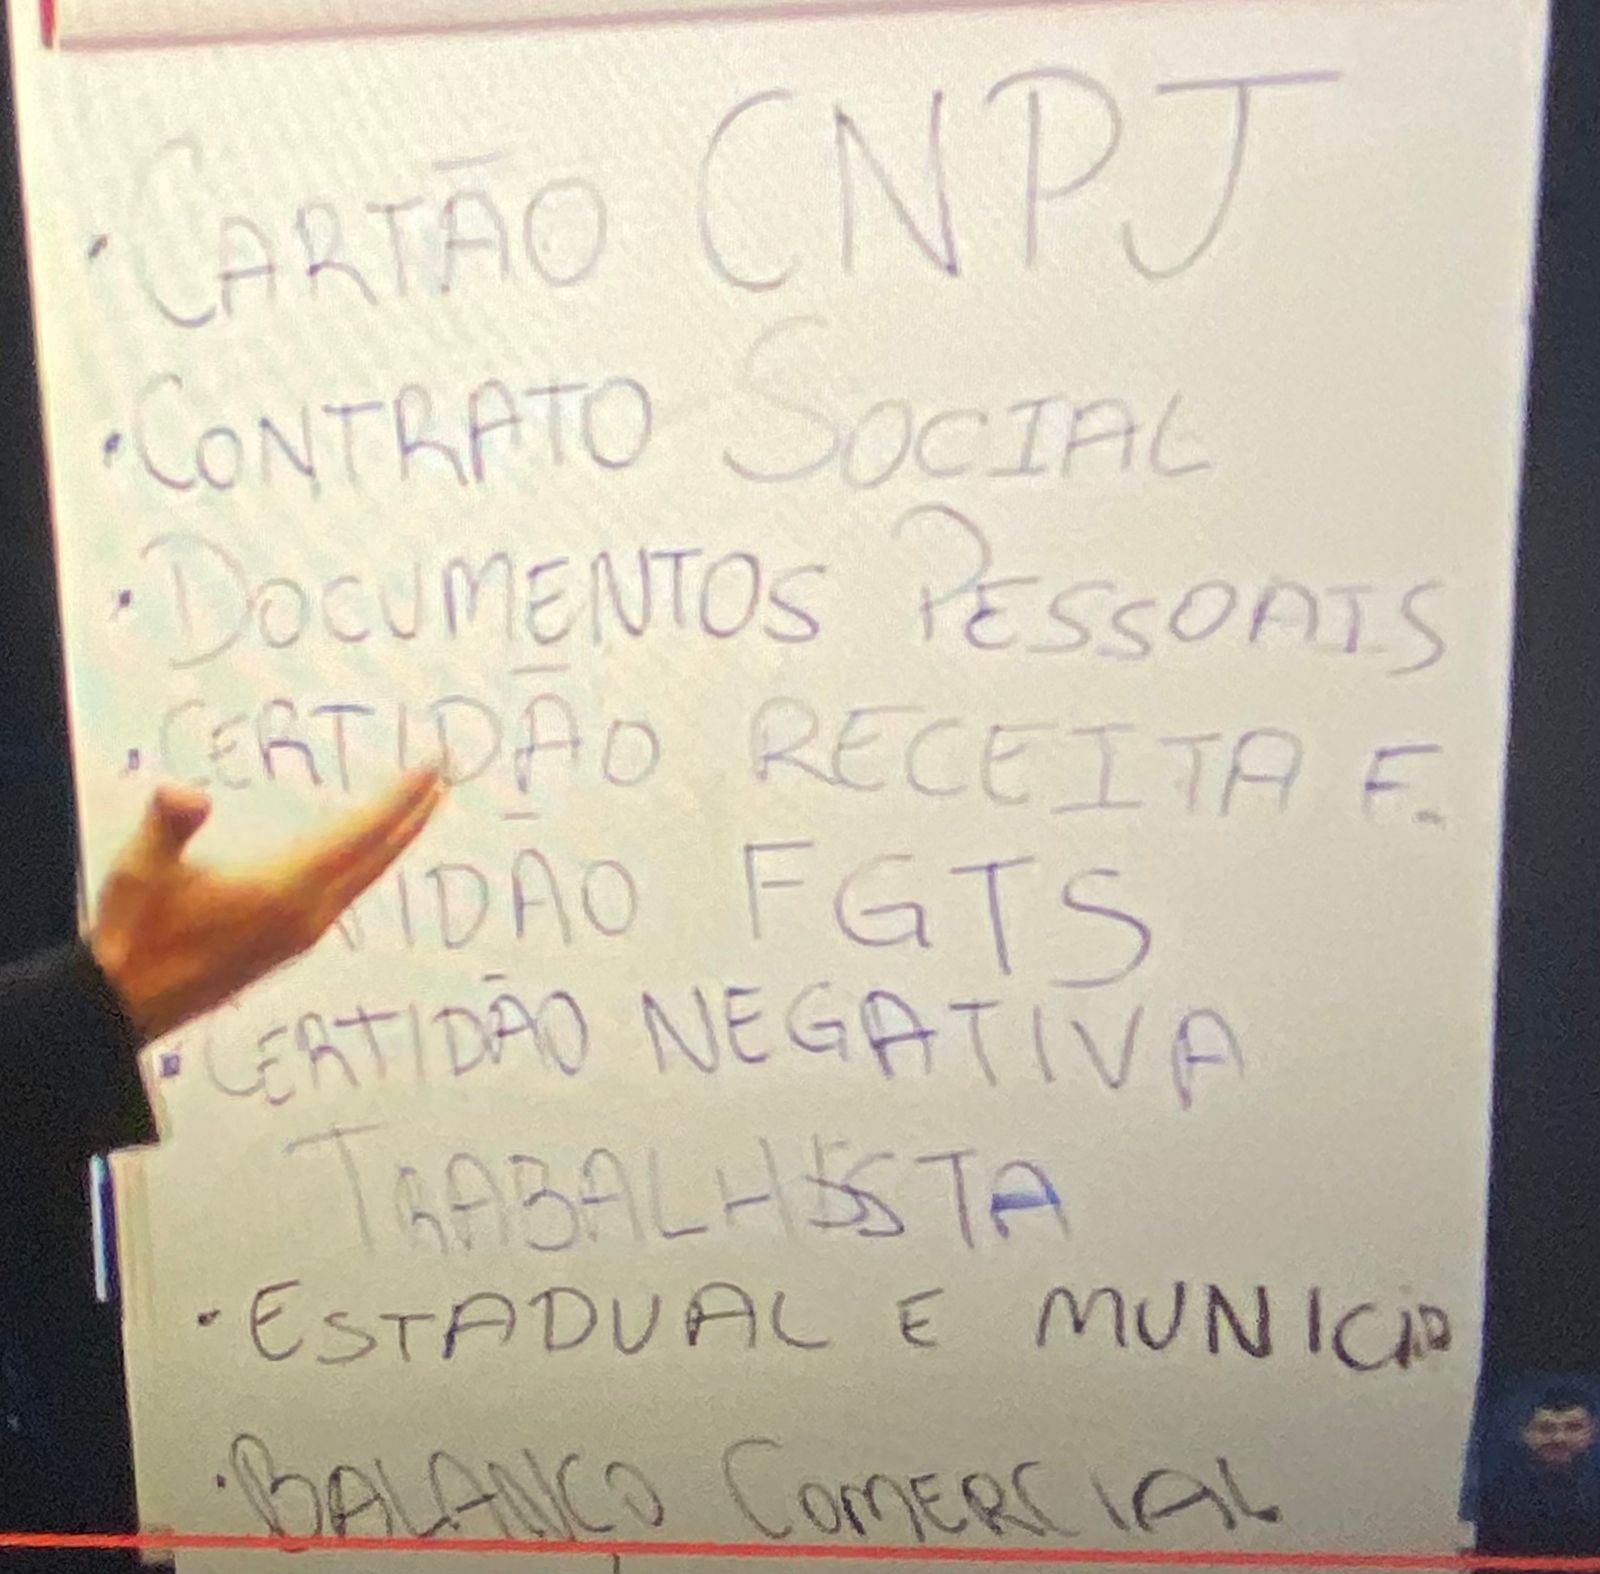 • CARTÃO CNPJ
• CONTRATO SOCIAL
• DOCUMENTOS PESSOAIS
• CERTIDÃO RECEITA F.
TIDÃO FGTS
• CERTIDÃO NEGATIVA
TRABALHISTA
• ESTADUAL E MUNICIP
• BALANCO COMERCIAL